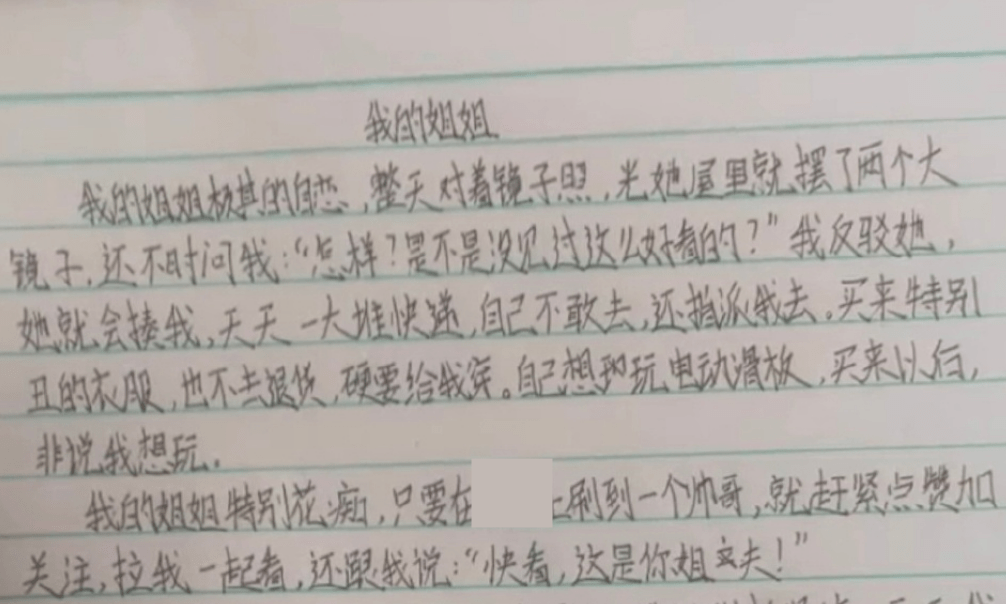 我的姐姐
我的姐姐极其的自恋,整天对着镜子照,光她屋里就摆了两个大
镜子,还不时问我:“怎样?是不是没见过这么好看的?”我反驳她,
她就会揍我,天天一大堆快递,自己不敢去,还指派我去。买来特别
丑的衣服,也不去退货,硬要给我穿。自己想玩电动滑板,买来以后,
非说我想玩。
我的姐姐特别花痴,只要在上刷到一个帅哥,就赶紧点赞加
关注,拉我一起看,还跟我说:“快看,这是你姐夫!”